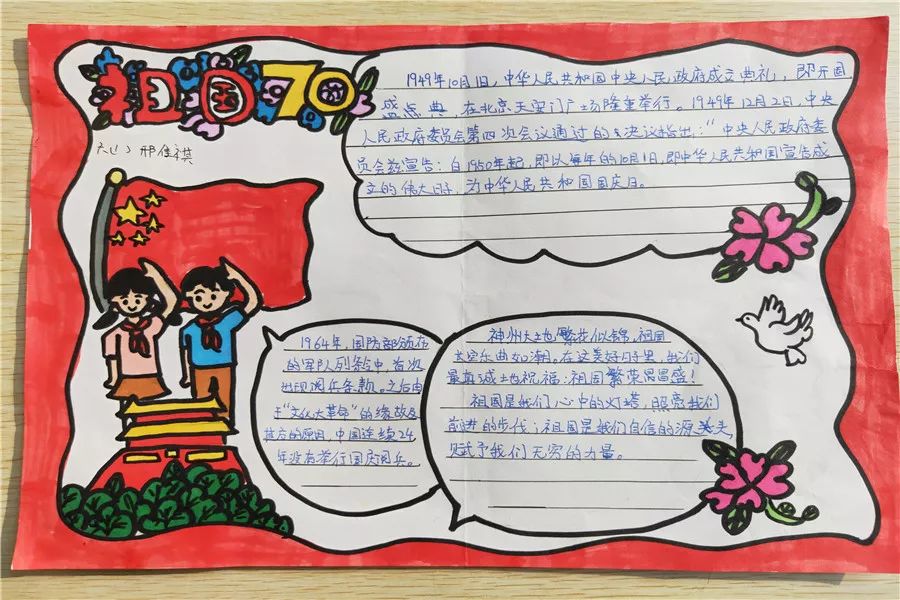 祖国70
六(1) 邢佳祺
1949年10月1日，中华人民共和国中央人民政府成立典礼，即开国
盛点典，在北京天安门广场隆重举行。1949年12月2日，中央
人民政府委员会第四次会议通过的《决议指出："中央人民政府委
员会兹宣告：自1950年起，即以每年的10月1日，即中华人民共和国宣告成
立的伟大日子，为中华人民共和国国庆日。
1964年，国防部颁布
的军队列条中，首次
出现阅兵条款。之后由
于"文化大革命"的缘故及
其后的原因，中国连续24
年没有举行国庆阅兵。
神州大地繁花似锦，祖国
长空乐曲如潮。在这美好日子里，让我们
最真诚地祝福：祖国繁荣昌盛！
祖国是我们心中的灯塔，照亮我们
前进的步伐；祖国是我们自信的源头，
赋予我们无穷的力量。